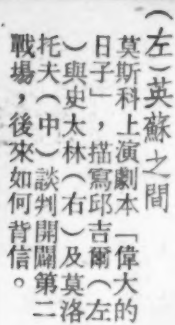 (左)英蘇之間
莫斯科上演劇本「偉大的
日子」,描寫邱吉爾(左
)與史太林(右)及莫洛
托夫(中)談判開闢第二
戰場,後來如何背信。